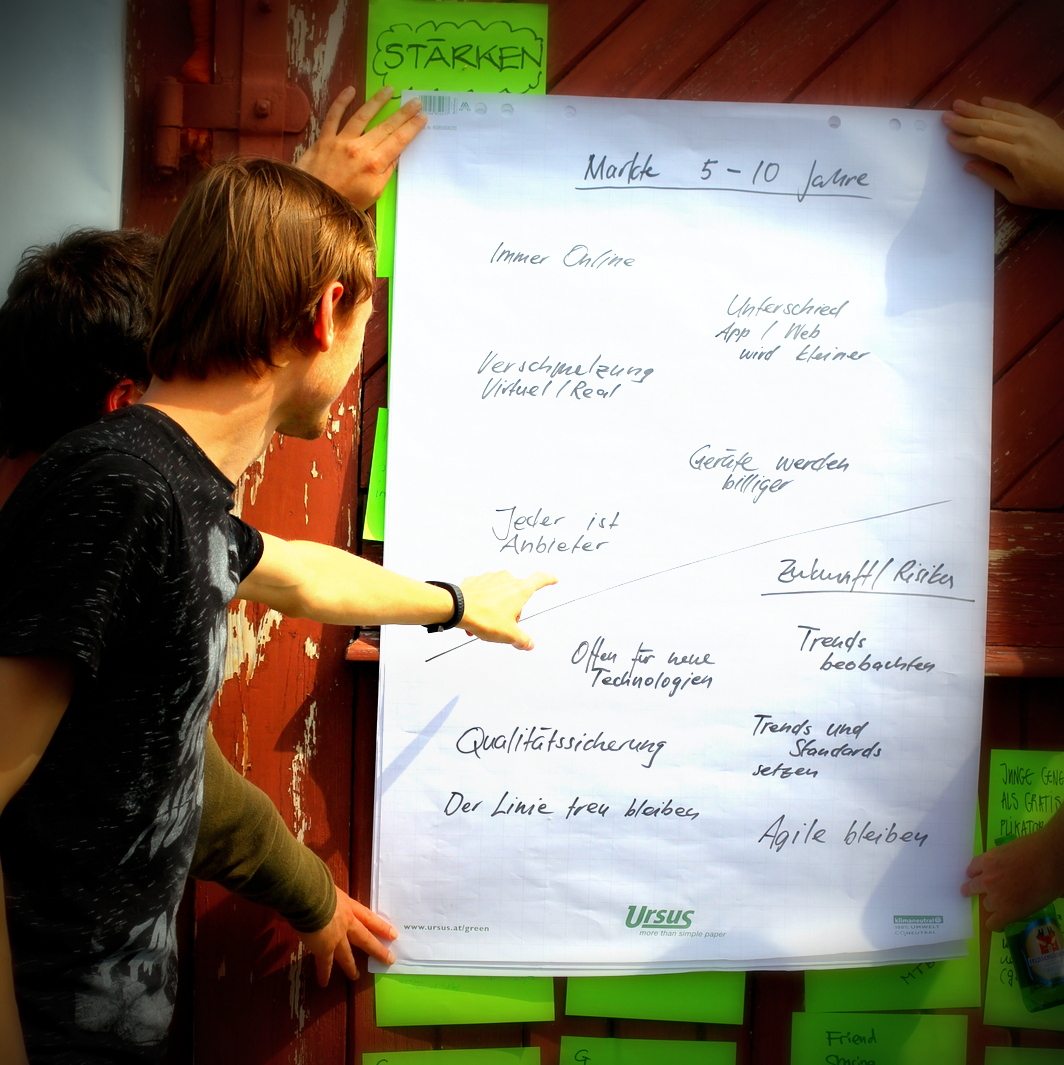 STÄRKEN
Märkte 5-10 Jahre
Immer Online
Unterschied
App / Web
wird kleiner
Verschmelzung
Virtuel / Real
Geräte werden
billiger
Jeder ist
Anbieter
Zukunft / Risiken
Offen für neue
Technologien
Trends
beobachten
Qualitätssicherung
Trends und
Standards
setzen
Der Linie treu bleiben
Agile bleiben
JUNGE GENE
ALS GRATIS
PLIKATO
www.ursus.at/green
Ursus
more than simple paper
klimaneutral
100% UMWELT
CO2NEUTRAL
MTB
Friend
Sharing
G